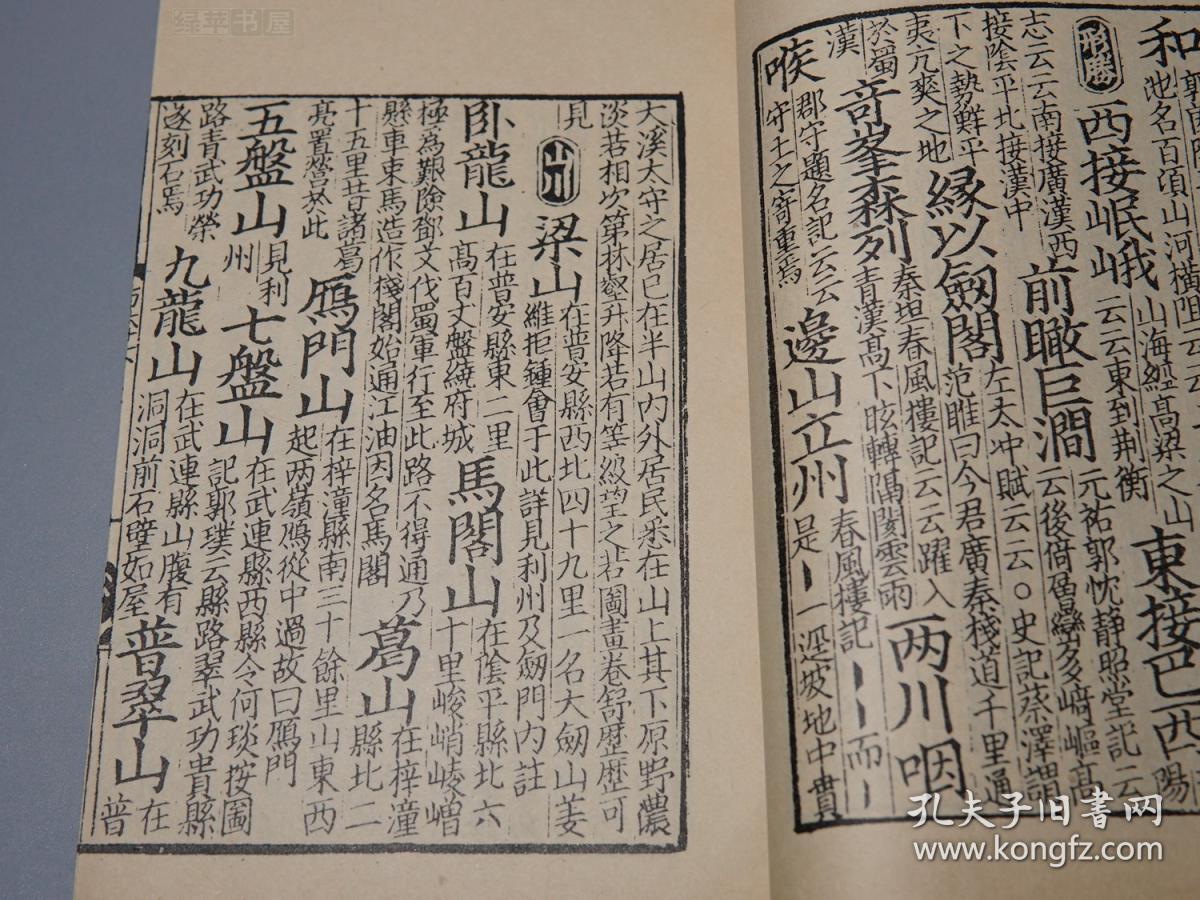 和池名百頃山河橫
形勝 西接岷峨云云東到荆衡山海經高梁之山 東接巴西陽
志云云南接廣漢西接陰平北接漢中 前瞰巨澗元祐郭忱靜照堂記云云後倚層巒多﨑嶇高
下之勢鮮平夷亢爽之地 緣以劔閣左太冲賦云云○史記蔡澤謂范睢曰今君廣秦棧道千里通
於蜀漢 奇峯森列秦垣春風樓記云云躍入青漢高下眩轉隔閡雲雨 两川咽
喉郡守題名記云云守土之寄重焉 邊山立州春風樓記ーー而ー是ー一逕坡地中貫
大溪太守之居已在半山内外居民悉在山上其下原野濃淡若相次第林壑升降若有等級望之若圖畫卷舒歷歷可
見 山川 梁山在普安縣西北四十九里一名大劔山姜維拒鍾會于此詳見利州及劔門内註
臥龍山在普安縣東二里高百丈盤繞府城 馬閣山在陰平縣北六十里峻峭崚嶒
極為艱險鄧文伐蜀軍行至此路不得通乃縣車東馬造作棧閣始通江油因名馬閣 葛山在梓潼縣北二
十五里昔諸葛亮置營於此 鴈門山在梓潼縣南三十餘里山東西起两嶺鴈從中過故曰鴈門
五盤山見利州 七盤山在武連縣西縣令何琰按圖記郭璞云縣路翠武功貴縣
路青武功榮遂刻石焉 九龍山在武連縣山腹有洞洞前石壁如屋 普翠山在普
绿苹书屋
孔夫子旧书网
www.kongfz.com